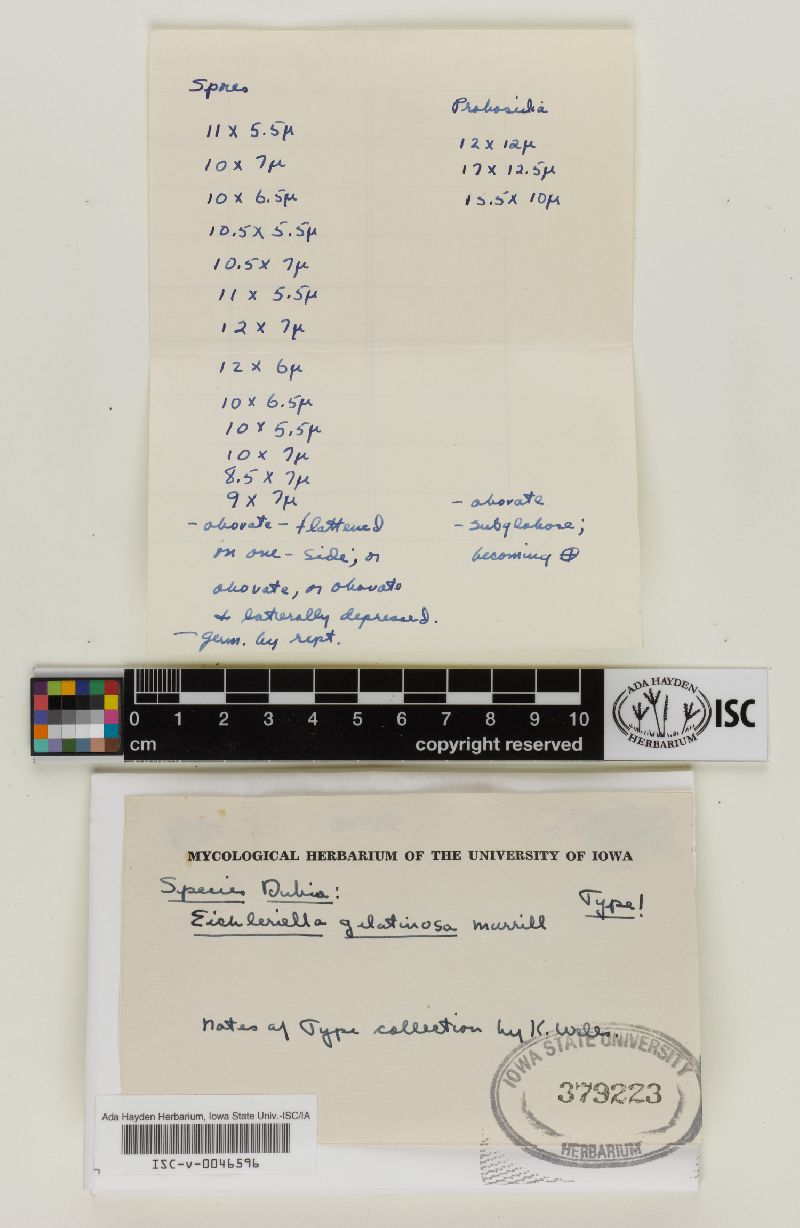 Spores
11 x 5.5µ
10 x 7µ
10 x 6.5µ
10.5 x 5.5µ
10.5 x 7µ
11 x 5.5µ
12 x 7µ
12 x 6µ
10 x 6.5µ
10 x 5.5µ
10 x 7µ
8.5 x 7µ
9 x 7µ
- obovate - flattened
on one-side; or
obovate, or obovate
+ laterally depressed.
- germ. by rept.
Probasidia
12 x 12µ
17 x 12.5µ
15.5 x 10µ
- obovate
- subglobose;
becoming ⊕
0 1 2 3 4 5 6 7 8 9 10
cm
copyright reserved
ADA HAYDEN
HERBARIUM
ISC
MYCOLOGICAL HERBARIUM OF THE UNIVERSITY OF IOWA
Species Dubia:
Type!
Eichleriella gelatinosa Murrill
Notes of Type collection by K. Wells.
IOWA STATE UNIVERSITY
379223
HERBARIUM
Ada Hayden Herbarium, Iowa State Univ.-ISC/IA
ISC-v-0046596